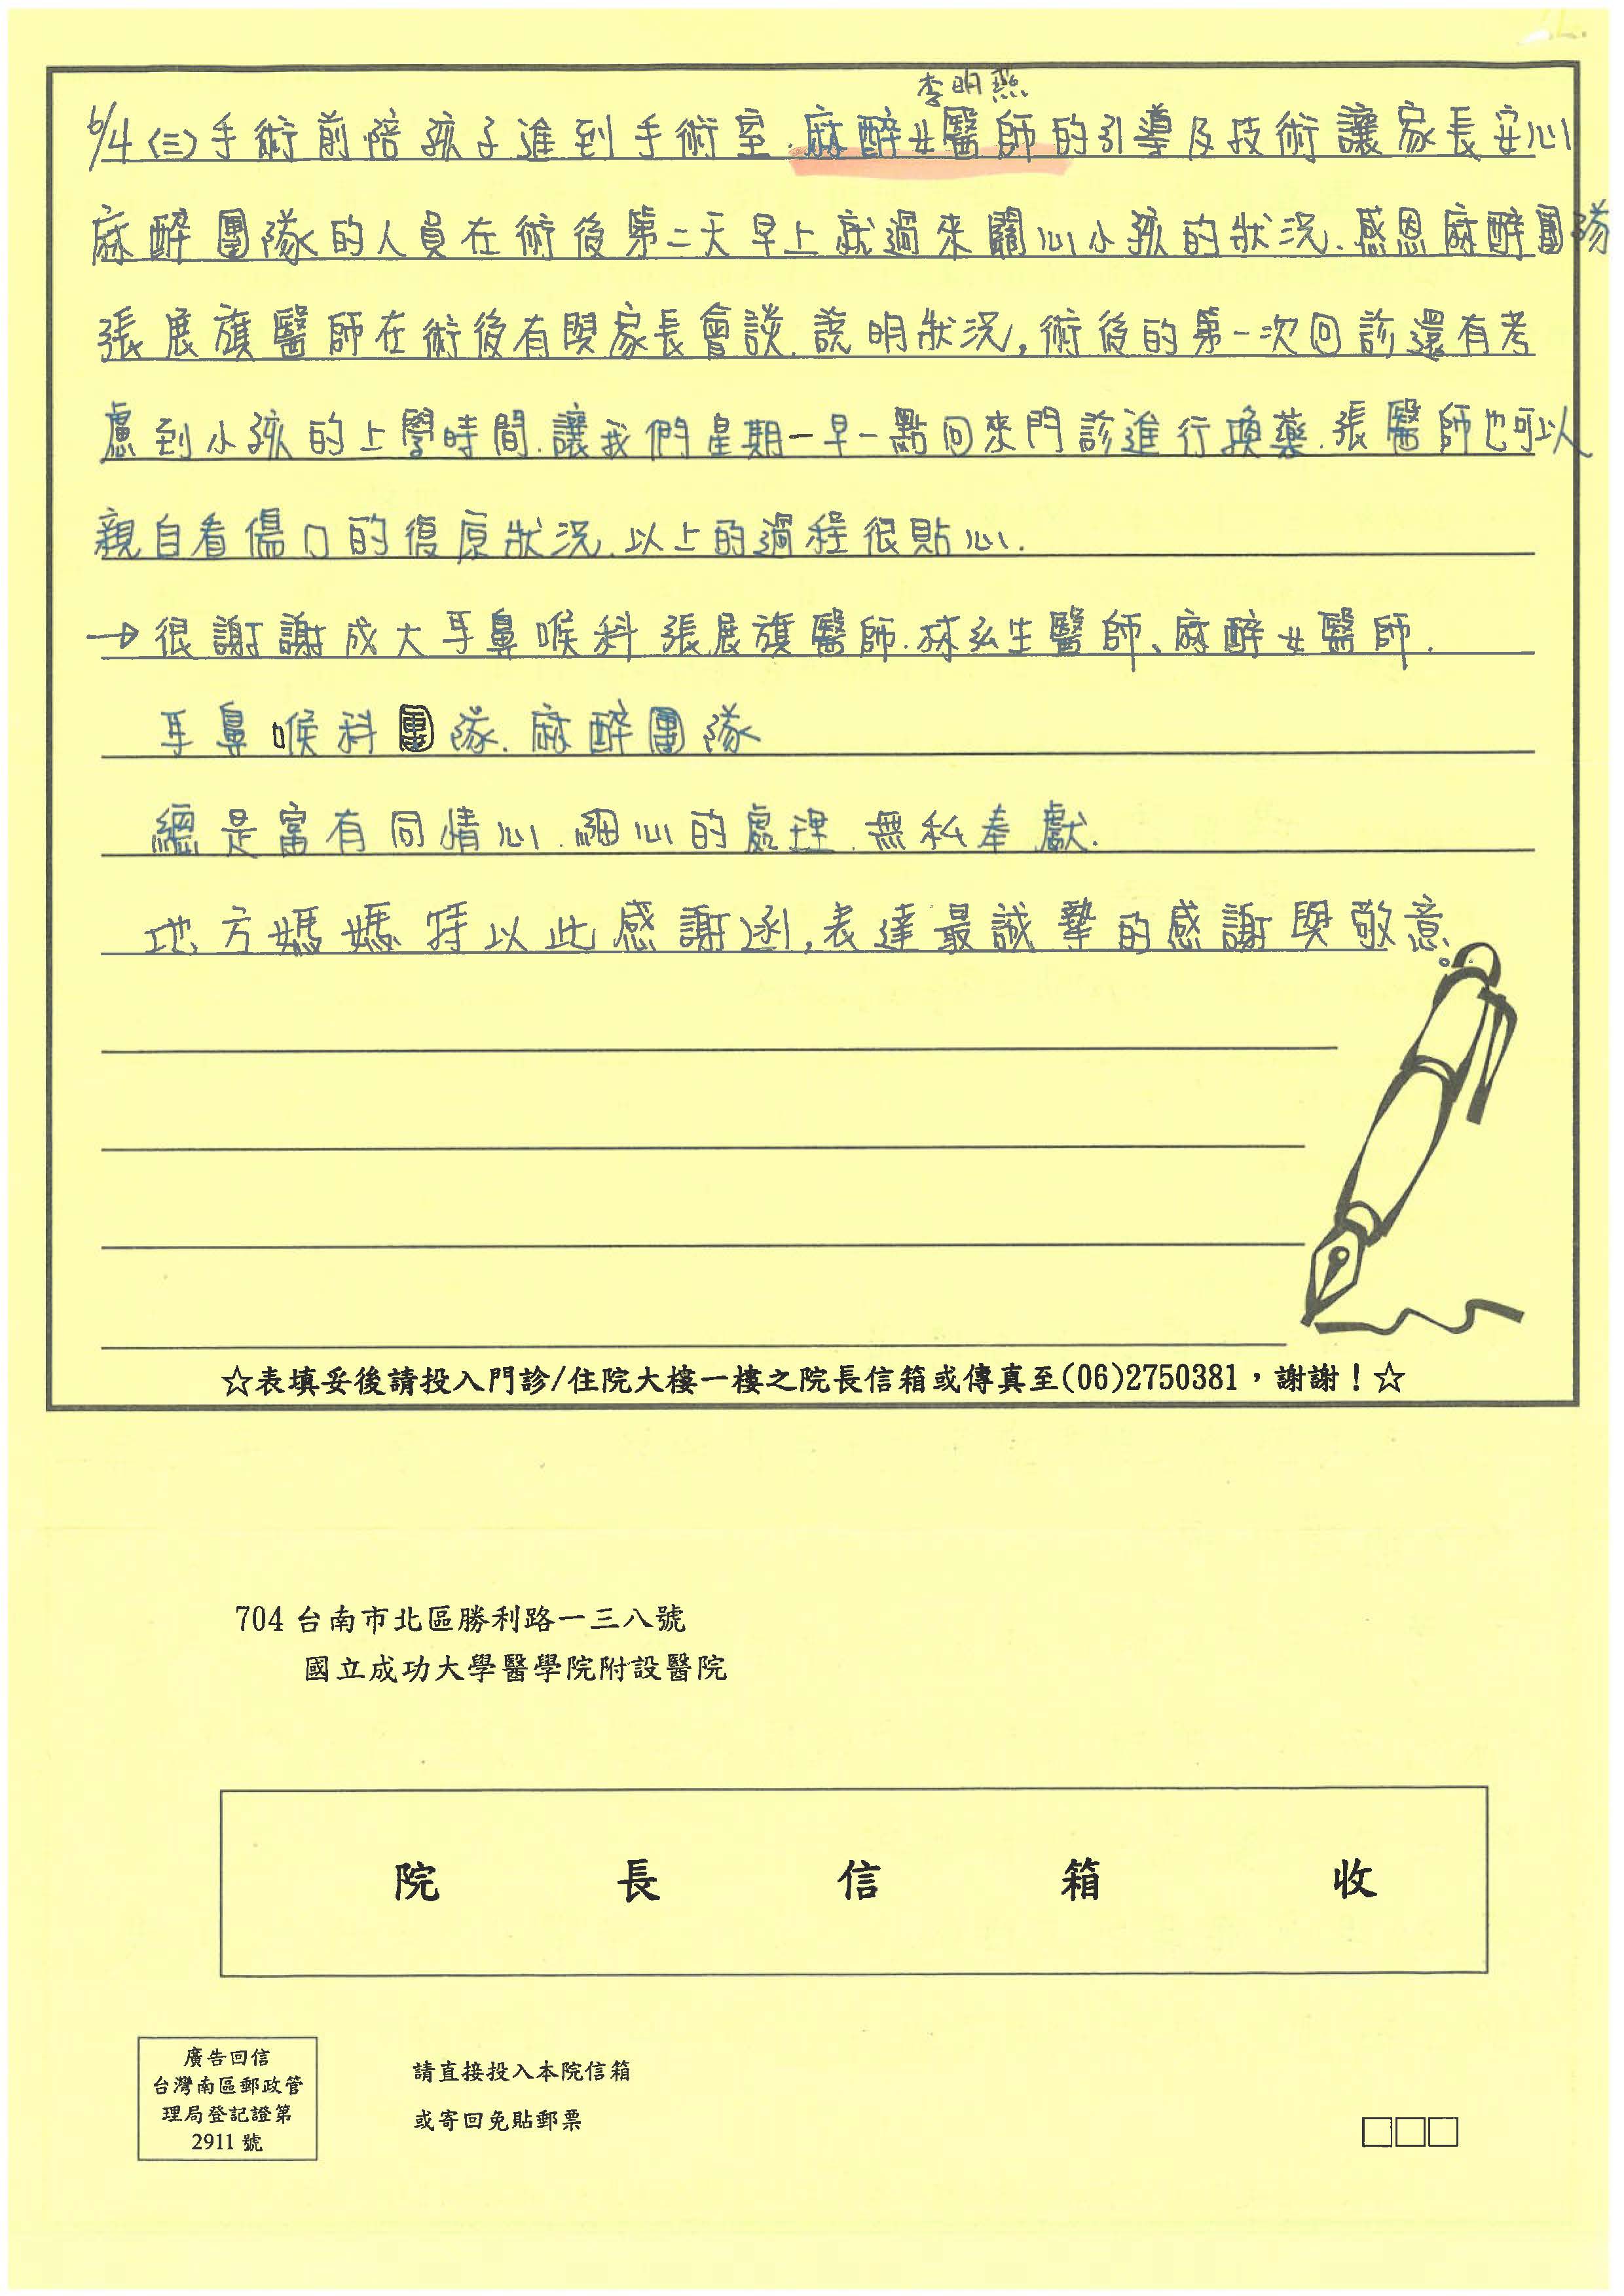 李明燕
6/4(三)手術前陪孩子進到手術室.麻醉女醫師的引導及技術讓家長安心
麻醉團隊的人員在術後第二天早上就過來關心小孩的狀況.感恩麻醉團隊
張展旗醫師在術後有與家長會談.說明狀況,術後的第一次回診還有考
慮到小孩的上學時間.讓我們星期一早一點回來門診進行換藥.張醫師也可以
親自看傷口的復原狀況.以上的過程很貼心.
→很謝謝成大耳鼻喉科張展旗醫師.林弘生醫師、麻醉女醫師.
耳鼻喉科團隊.麻醉團隊
總是富有同情心.細心的處理.無私奉獻.
地方媽媽特以此感謝函,表達最誠摯的感謝與敬意。
☆表填妥後請投入門診/住院大樓一樓之院長信箱或傳真至(06)2750381,謝謝!☆
704 台南市北區勝利路一三八號
國立成功大學醫學院附設醫院
院長信箱收
廣告回信
台灣南區郵政管
理局登記證第
2911 號
請直接投入本院信箱
或寄回免貼郵票